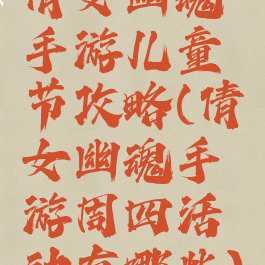 倩女幽魂
手游儿童
节攻略(倩
女幽魂手
游周四活
动有哪些)